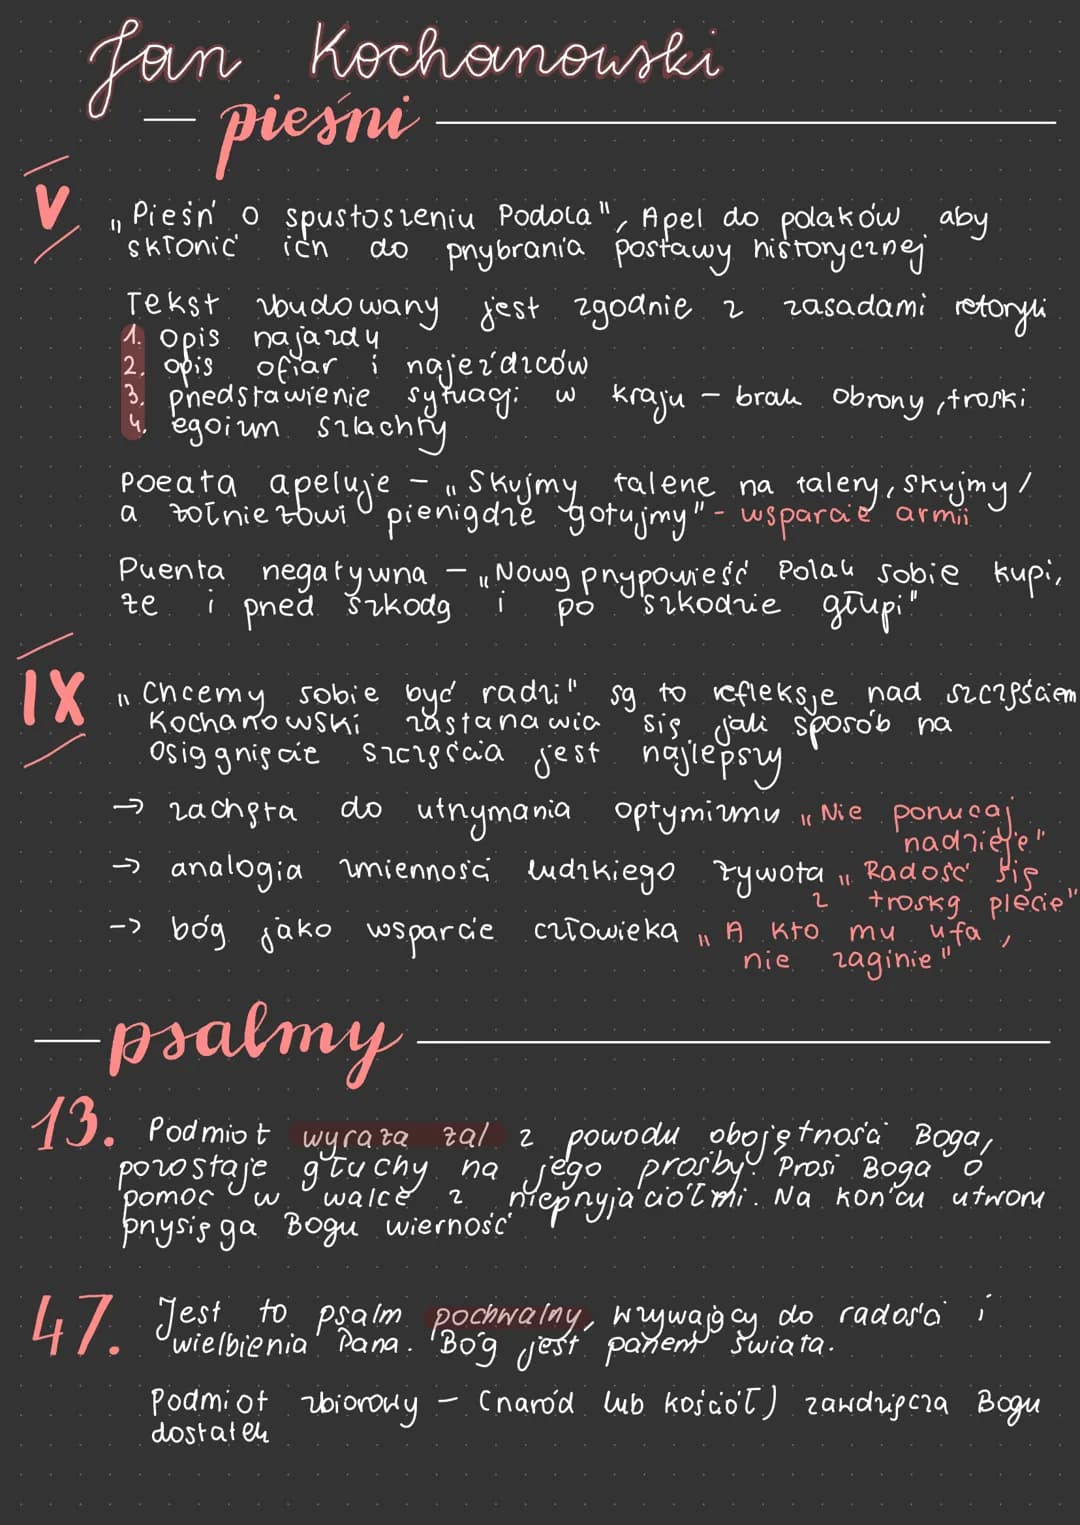 Jan Kochanowski
pieśni
V
„Pieśń o spustoszeniu Podola", Apel do polaków aby
skłonić ich do przybrania postawy historycznej
Tekst zbudowany jest zgodnie z zasadami retoryki
1. opis najazdy
2. opis ofiar i najeźdzców
3. przedstawienie sytuacji w kraju – brak obrony, troski
4. egoizm szlachty
Poeata apeluje – „Skujmy talene na talery, skujmy /
a żołnierzowi pieniądze gotujmy" - wsparcie armii
Puenta negatywna – „Nową przypowieść Polak sobie kupi,
że i przed szkodą i po szkodzie głupi"
IX
„Chcemy sobie być radzi" są to refleksje nad szczęściem
Kochanowski zastanawia się jaki sposób na
osiągnięcie szczęścia jest najlepszy
→ zachęta do utrzymania optymizmu „Nie porzucaj
nadzieje"
→ analogia zmienności ludzkiego żywota „Radość się
z troską plecie"
→ bóg jako wsparcie człowieka „A kto mu ufa,
nie zaginie"
psalmy
13. Podmiot wyraża żal z powodu obojętności Boga,
pozostaje głuchy na jego prośby. Prosi Boga o
pomoc w walce z nieprzyjaciółmi. Na końcu utworu
przysięga Bogu wierność
47. Jest to psalm pochwalny, wzywający do radości i
wielbienia Pana. Bóg jest panem świata.
Podmiot zbiorowy – (naród lub kościół) zawdzięcza Bogu
dostatek